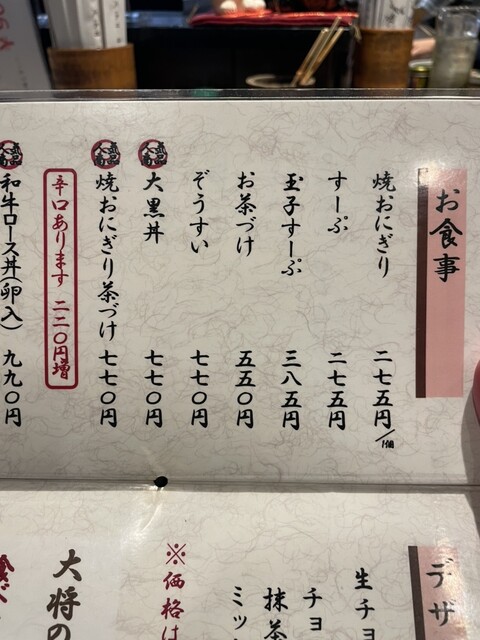 お食事
焼おにぎり 二七五円/1個
すーぷ 二七五円
玉子すーぷ 三八五円
お茶づけ 五五〇円
ぞうすい 七七〇円
人気商品 大黒丼 七七〇円
人気商品 焼おにぎり茶づけ 七七〇円
辛口あります 二二〇円増
和牛ロース丼(卵入) 九九〇円
デザ
生チョ
チョ
抹茶
ミッ
※価格は
大将の
食べ